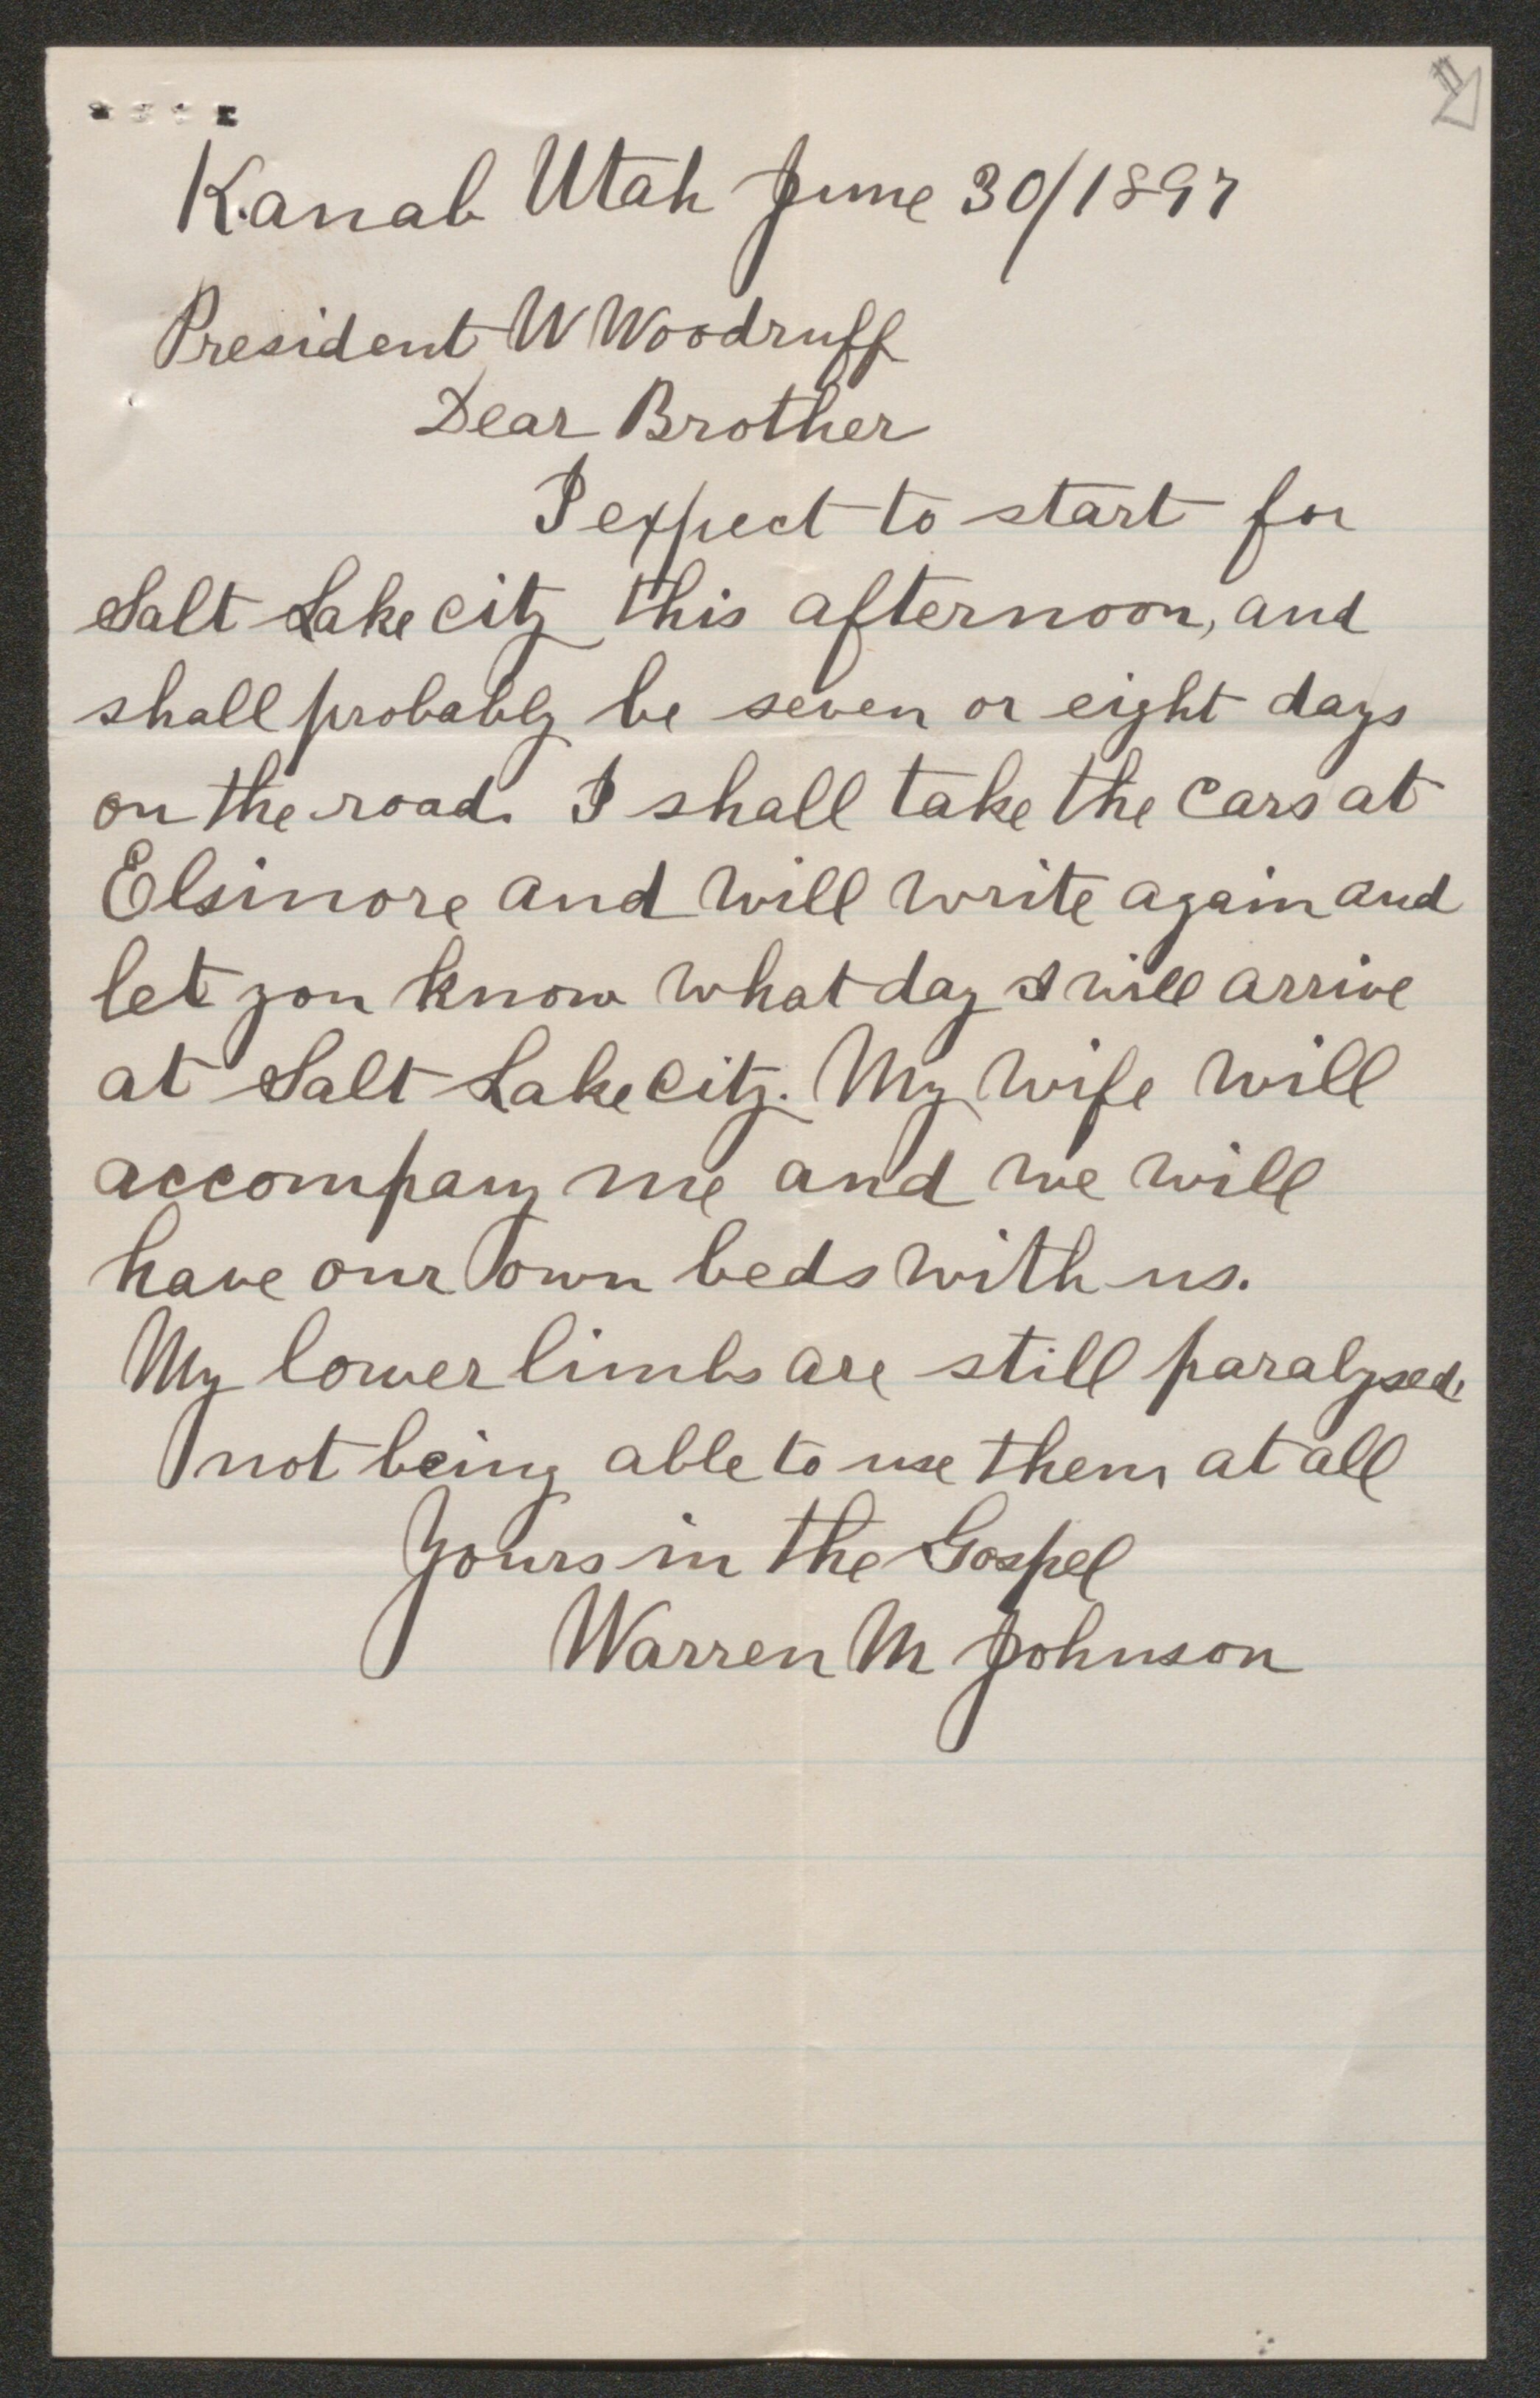 Kanab Utah June 30/1897
President W Woodruff
Dear Brother
I expect to start for
Salt Lake city this afternoon, and
shall probably be seven or eight days
on the road. I shall take the cars at
Elsinore and will write again and
let you know what day I will arrive
at Salt Lake city. My wife will
accompany me and we will
have our own beds with us.
My lower limbs are still paralysed.
not being able to use them at all
Yours in the Gospel
Warren M Johnson